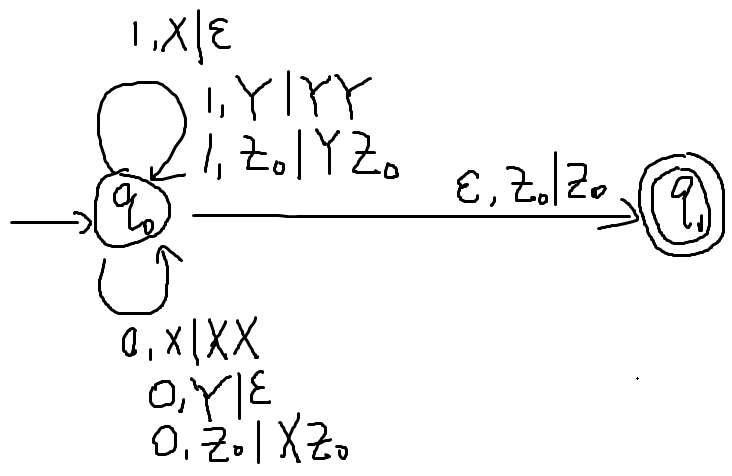 1,X|ε
1,Y|YY
1,Z₀|YZ₀
ε,Z₀|Z₀
q₀
q₁
0,X|XX
0,Y|ε
0,Z₀|XZ₀